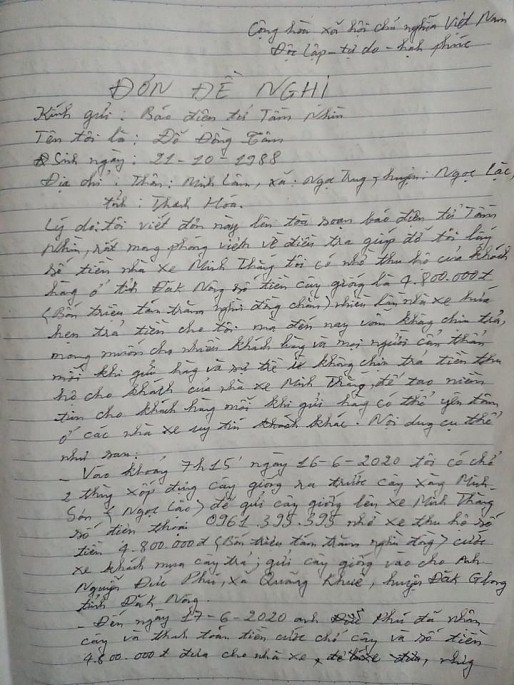 Cộng hòa xã hội chủ nghĩa Việt Nam
Độc lập - tự do - hạnh phúc
ĐƠN ĐỀ NGHỊ
Kính gửi: Báo điện tử Tầm Nhìn
Tên tôi là: Đỗ Đồng Tâm
Sinh ngày: 21-10-1988
Địa chỉ: Thôn: Minh Lâm, xã: Ngọc Trung, huyện: Ngọc Lặc,
tỉnh: Thanh Hoá.
Lý do: tôi viết đơn này lên tòa soạn báo điện tử Tầm
Nhìn, rất mong phóng viên về điều tra giúp đỡ tôi lấy
số tiền nhà xe Minh Thắng tôi có nhờ thu hộ của khách
hàng ở tỉnh Đăk Nông số tiền cây giống là 4.800.000đ
(Bốn triệu tám trăm nghìn đồng chẵn) nhiều lần nhà xe hứa
hẹn trả tiền cho tôi mà đến nay vẫn không chịu trả,
mong muốn cho nhiều khách hàng và mọi người cẩn thận
mỗi khi gửi hàng và không chịu trả tiền thu
hộ cho khách của nhà xe Minh Thắng, để tạo niềm
tin cho khách hàng mỗi khi gửi hàng có thể yên tâm
ở các nhà xe uy tín khác. Nội dung cụ thể
như sau:
- Vào khoảng 7h15' ngày 16-6-2020 tôi có chở
2 thùng xốp đựng cây giống ra trước cây xăng Minh
Sơn (Ngọc Lặc) để gửi cây giống lên xe Minh Thắng
số điện thoại 0961.395.395 nhờ xe thu hộ số
tiền 4.800.000đ (Bốn triệu tám trăm nghìn đồng) cước
xe khách mua cây trả; gửi cây giống vào cho Anh
Nguyễn Đức Phú, xã Quảng Khuê, huyện Đăk Glong
tỉnh Đăk Nông
- Đến ngày 17-6-2020 anh Phú đã nhận
cây và thanh toán tiền cước chở cây và số tiền
4.800.000đ đưa cho nhà xe,